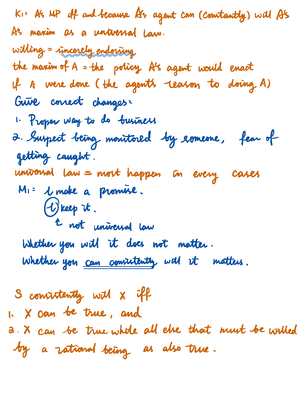 K1: A is MP iff and because A's agent can (consistently) will A's
A's maxim as a universal law.
willing = sincerely endorsing
the maxim of A = the policy A's agent would enact
if A were done (the agent's reason to doing A)
Give correct changes:
1. Proper way to do business
2. Suspect being monitored by someone, fear of
getting caught.
universal law = must happen in every cases
M1: I make a promise.
I keep it.
not universal law
Whether you will it does not matter.
Whether you can consistently will it matters.
S consistently will X iff
1. X can be true, and
2. X can be true while all else that must be willed
by a rational being is also true.